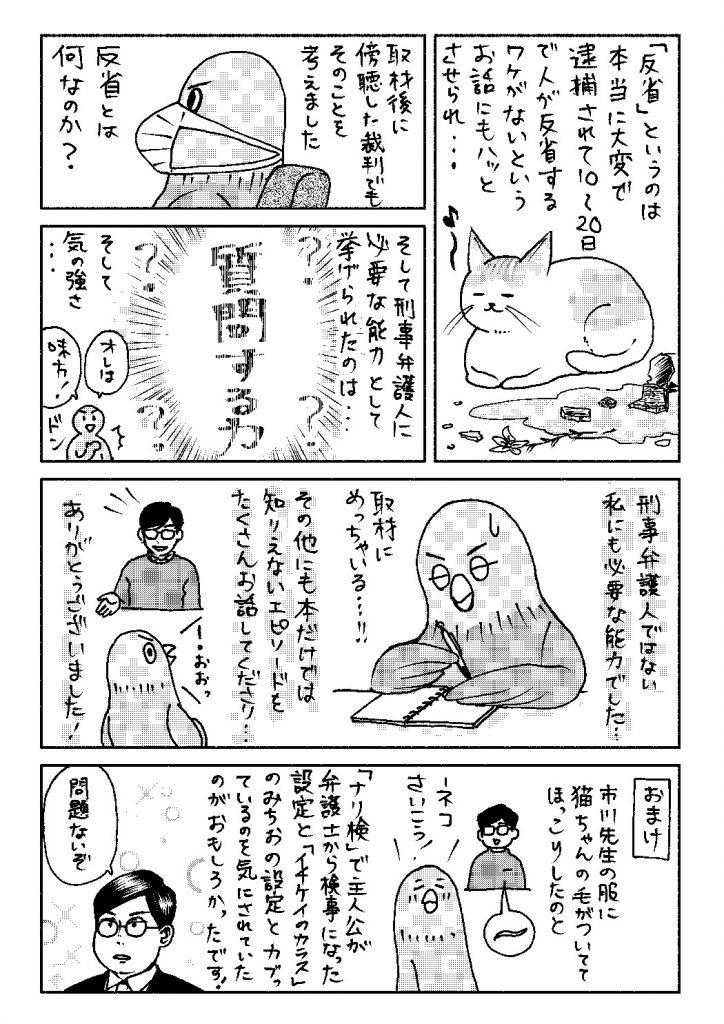 「反省」というのは
本当に大変で
逮捕されて10〜20日
で人が反省する
ワケがないという
お話にもハッと
させられ・・・
取材後に
傍聴した裁判でも
そのことを
考えました
反省とは
何なのか？
そして刑事弁護人に
必要な能力として
挙げられたのは・・・
？
？
質問する力
？
？
そして
気の強さ
・・・
オレは
味方！
ドン
刑事弁護人ではない
私にも必要な能力でした・・・
取材に
めっちゃいる・・・!!
その他にも本だけでは
知りえないエピソードを
たくさんお話してくださり・・・
ありがとうございました！
おおっ
おまけ
市川先生の服に
猫ちゃんの毛がついてて
ほっこりしたのと
ネコ
さいこう！
「ナリ検」で主人公が
弁護士から検事になった
設定と「イチケイのカラス」
のみちおの設定とカブっ
ているのを気にされていた
のがおもしろかったです！
問題ないぞ